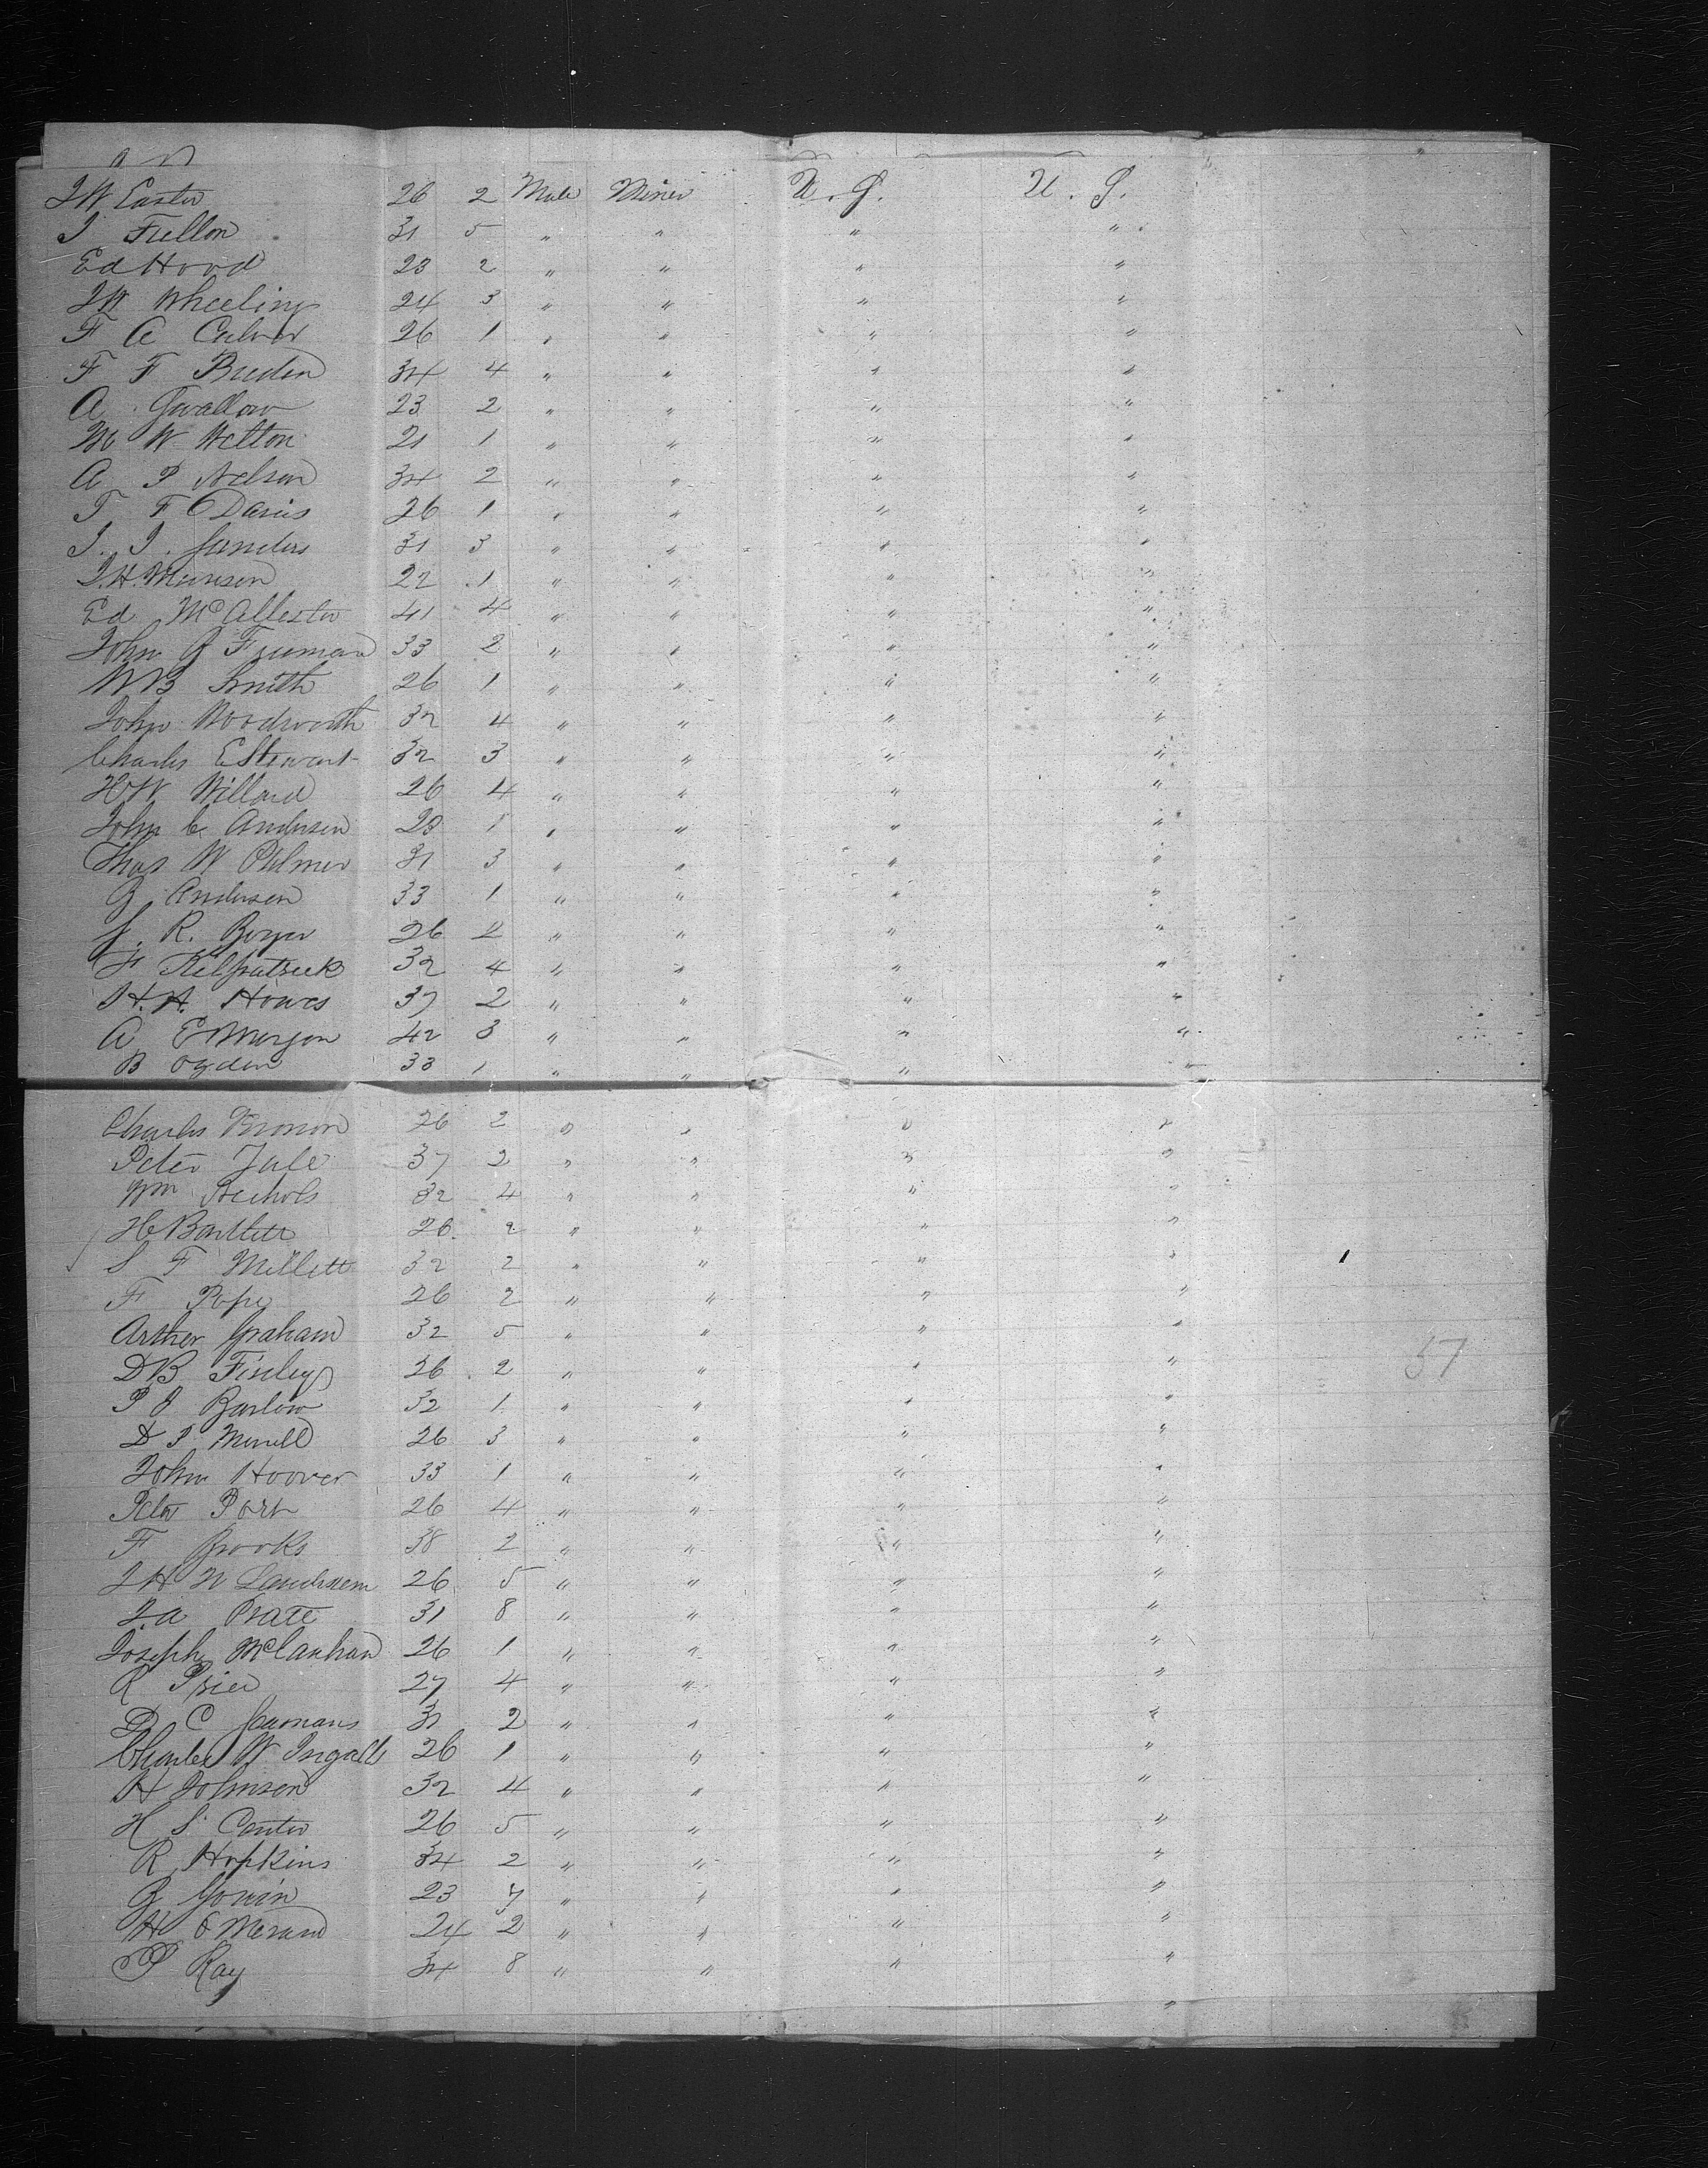 J W Easter 26 2 Male Miner U. S. U. S.
J Fullon 31 5 " " " "
Ed Hood 23 2 " " " "
J W Wheeling 24 3 " " " "
F A Culver 26 1 " " " "
F F Breden 34 4 " " " "
A Swallow 23 2 " " " "
M W Helton 21 1 " " " "
A P Nelson 34 2 " " " "
T F Davis 26 1 " " " "
J. J. Sanders 31 3 " " " "
J. H. Munson 22 1 " " " "
Ed McAllester 41 4 " " " "
John G Freeman 33 2 " " " "
W B Smith 26 1 " " " "
John Woodworth 32 4 " " " "
Charles E Stewart 32 3 " " " "
H W Willard 26 4 " " " "
John C Andersen 23 1 " " " "
Thos W Palmer 31 3 " " " "
G Andersen 33 1 " " " "
S. R. Boyer 26 2 " " " "
F Kilpatrick 32 4 " " " "
H. H. Howes 37 2 " " " "
A E Morgan 42 3 " " " "
B Ogden 33 1 " " " "
Charles Bronson 26 2 " " " "
Peter Jule 37 2 " " " "
Wm Nichols 32 4 " " " "
H Bartlett 26 2 " " " "
S F Millett 32 2 " " " "
F Pope 26 2 " " " "
Arther Graham 32 5 " " " "
D B Finley 26 2 " " " "
P J Barlow 32 1 " " " "
57
D P Merrill 26 3 " " " "
John Hoover 33 1 " " " "
Peter Port 26 4 " " " "
F Brooks 38 2 " " " "
J H N 26 5 " " " "
J. A Prate 31 8 " " " "
Joseph McClanhan 26 1 " " " "
R Price 27 4 " " " "
D C Seamans 31 2 " " " "
Charles W Ingalls 26 1 " " " "
H Johnson 32 4 " " " "
H S Center 26 5 " " " "
R Hopkins 34 2 " " " "
G Gowin 23 7 " " " "
H O 24 2 " " " "
P Ray 34 8 " " " "
"